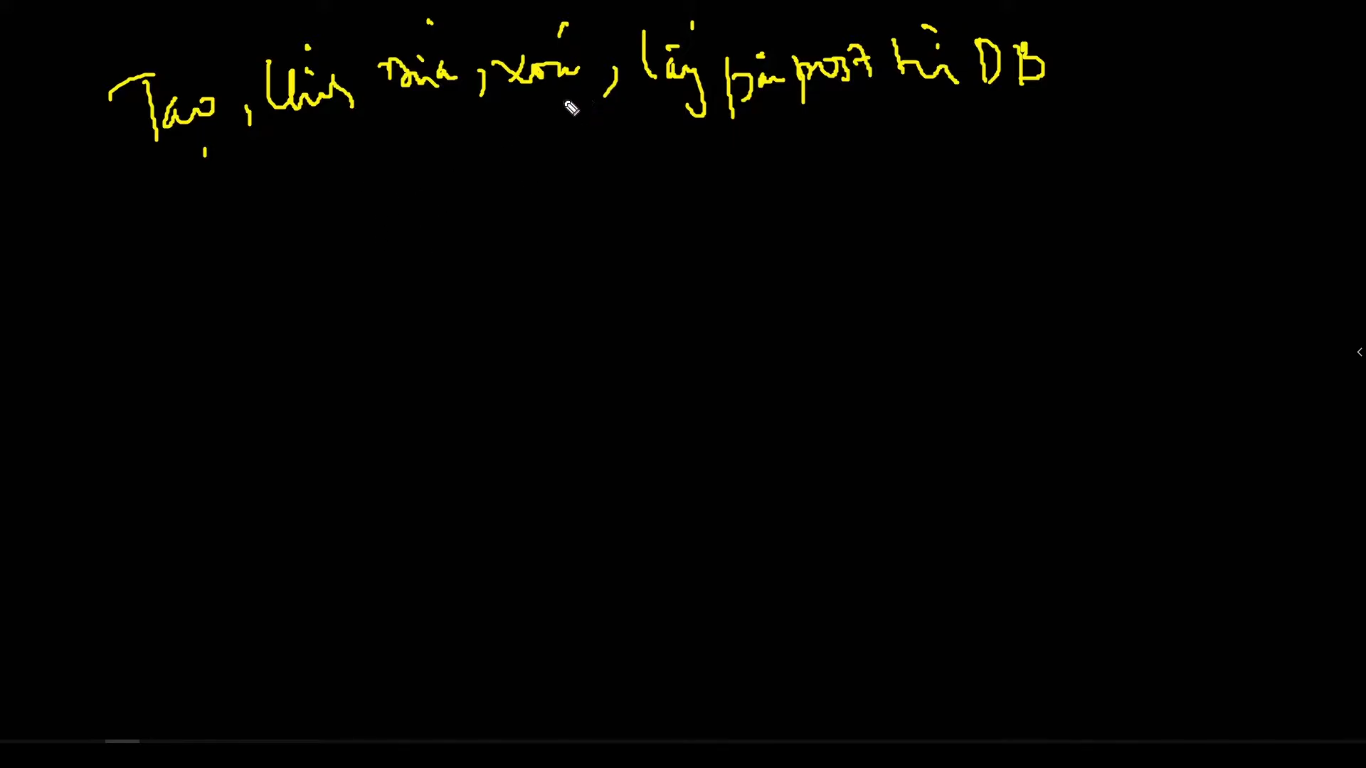 Tạo, chỉnh sửa, xoá, lấy bài post từ DB